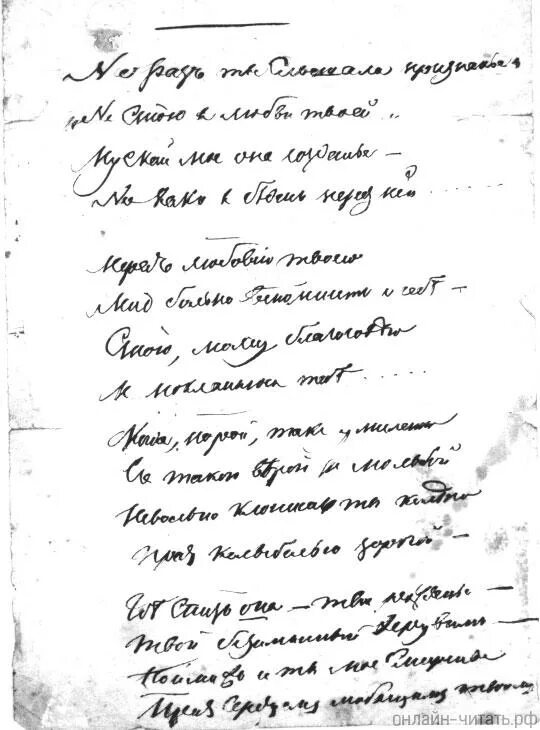 Не разъ ты слышала признанье:
„Не стою я любви твоей„
Пускай мое она созданье —
Но какъ я бѣденъ передъ ней......

Передъ любовію твоею
Мнѣ больно вспомнить о себѣ —
Стою, молчу, благоговѣю
И поклоняюся тебѣ.....

Когда, порой, такъ умиленно
Съ такою вѣрой и мольбой
Невольно клонишь ты колѣно
Предъ колыбелью дорогой —

Гдѣ спитъ она — твое рожденье —
Твой безъимянный херувимъ —
Пойми жъ и ты мое смиренье
Предъ сердцемъ любящимъ твоимъ
онлайн-читать.рф